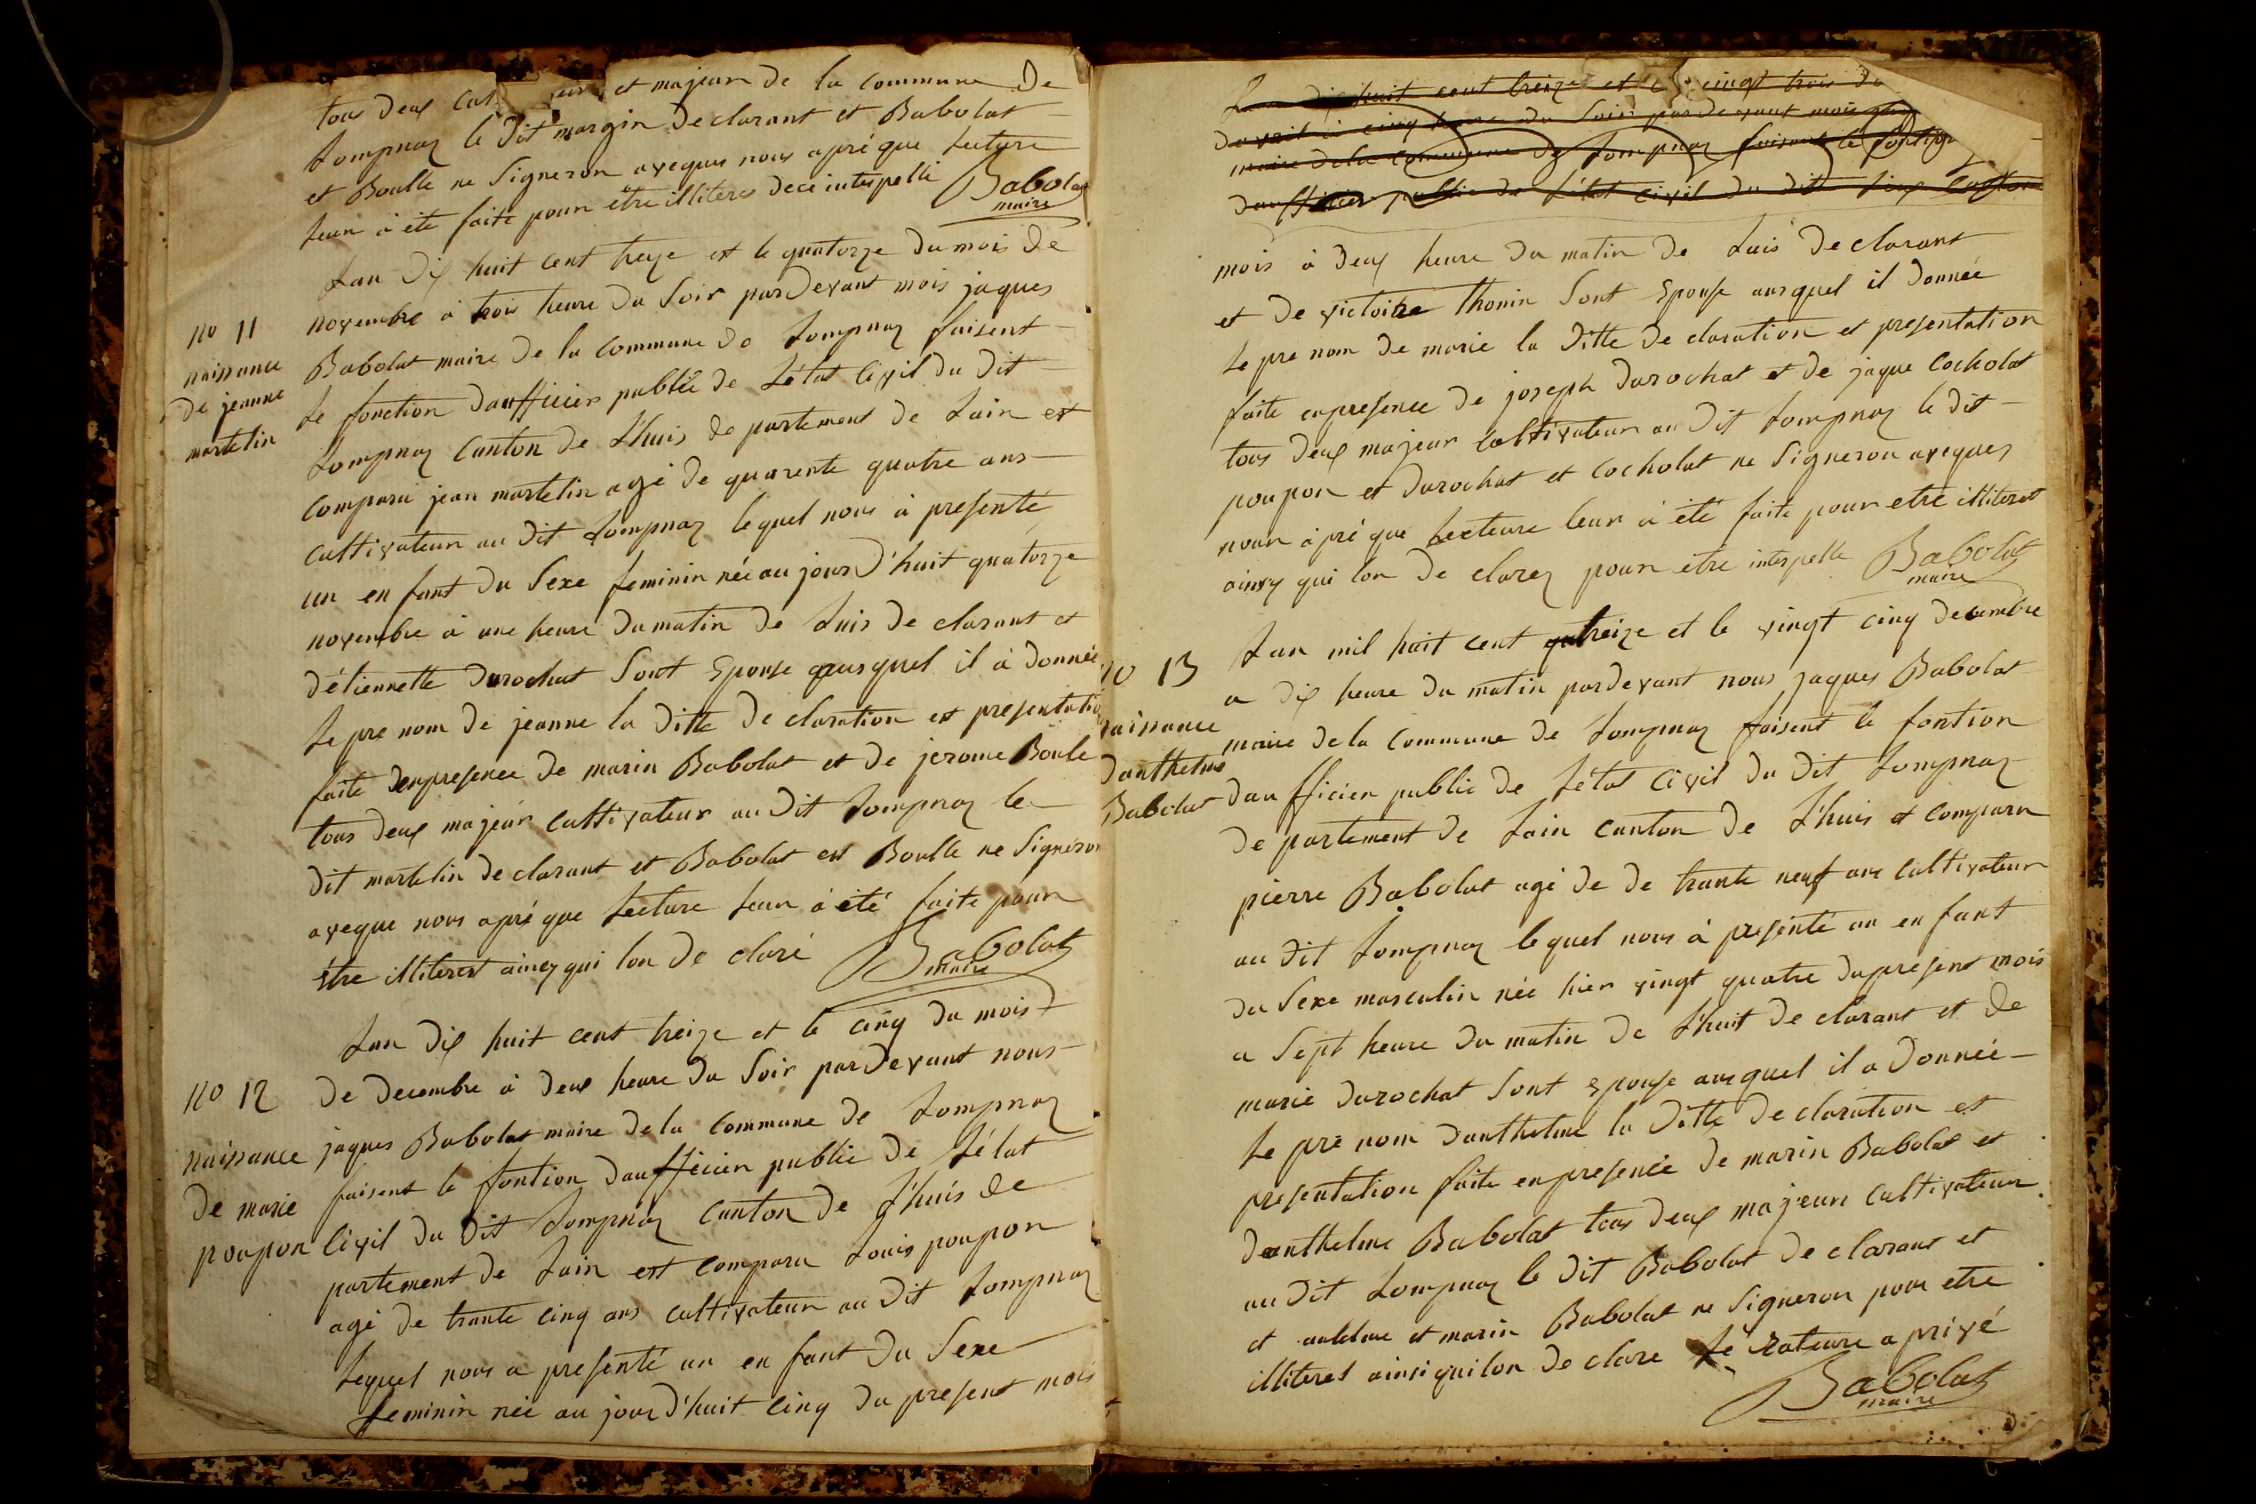 tous deux et majeur de la commune de
Lompnaz le dit margin declarant et Babolat
et Boulle ne Signeron aveques nous apré que Lecture
Leur à été faite pour être illiteres dece interpellé Babolat
maire
Lan dix huit cent treze et le quatorze du mois de
novembre à trois heure du Soir pardevant mois jaques
no 11
naissance
de jeanne
martelin
Babolat maire de la commune de Lompnaz faisent
Le fonction daufficier publie de Létat Civil du dit
Lompnaz Canton de L'huis de partement de Lain et
comparu jean martelin agé de quarente quatre ans
cultivateur au dit Lompnaz lequel nous à presenté
un en fant du Sexe feminin née au jourd'huit quatorze
novembre à une heure du matin de Luis de clarant et
détiennette Durochat Sont Epouse ausquel il à donnée
Le pre nom de jeanne la ditte de claration et presentatio
faite enpresence de marin Babolat et de jerome Boule
tous deux majeur cultivateur au dit Lompnaz le
dit martelin de clarant et Babolat et Boulle ne Signeron
aveque nous apré que Lecture Leur à été faite pour
être illiterest aincy qui lon de claré Babolat
maire
Lan dix huit cent treize et le cinq du mois
no 12
naissance
de marie
poupon
de decembre à deux heure du Soir pardevant nous
jaques Babolat maire dela commune de Lompnaz
faisent le fontion daufficier publie de Létat
Civil du dit Lompnaz Canton de L'huis de
partement de Lain est comparu Louis poupon
agé de trante cinq ans cultivateur au dit Lompnaz
Lequel nous a presenté un en fant du Sexe
feminin née au jourd'huit cinq du present mois
Lan dix huit cent treize et le vingt trois du
davril à cinq heure du Soir pardevant mois
maire dela commune de Lompnaz faisent le fontion
daufficier publie de Létat civil du dit Lieu Canton
mois à deux heure du matin de Luis declarant
et de victoire Thonin Sont Epouse ausquel il donnée
Le pre nom de marie la ditte de claration et presentation
faite enpresence de joseph durochat et de jaque cocholat
tous deux majeur cultivateur au dit Lompnaz le dit
poupon et durochat et cocholat ne Signeron aveques
nous àpré que Lecteure leur à été faite pour etre illiterest
aincy qui lon de clarez pour etre interpelle Babolat
maire
Lan mil huit cent treize et le vingt cinq decembre
no 13
naissance
danthelme
Babolat
a dix heure du matin pardevant nous jaques Babolat
maire dela commune de Lompnaz faisent le fontion
daufficier publie de Létat civil du dit Lompnaz
de partement de Lain canton de L'huis et comparu
pierre Babolat agé de de trante neuf ans cultivateur
au dit Lompnaz lequel nous à presenté un en fant
du Sexe masculin née hier vingt quatre dupresent mois
a Sept heure du matin de L'huit de clarant et de
marie durochat Sont epouse ausquel il a donnée
Le pré nom danthelme la ditte de claration et
presentation faite enpresence de marin Babolat et
danthelme Babolat tous deux majeurs cultivateur
au dit Lompnaz le dit Babolat de clarant et
et antelme et marin Babolat ne Signeron pour etre
illiterest ainsiquilon de clare Le rateure aprivé
Babolat
maire